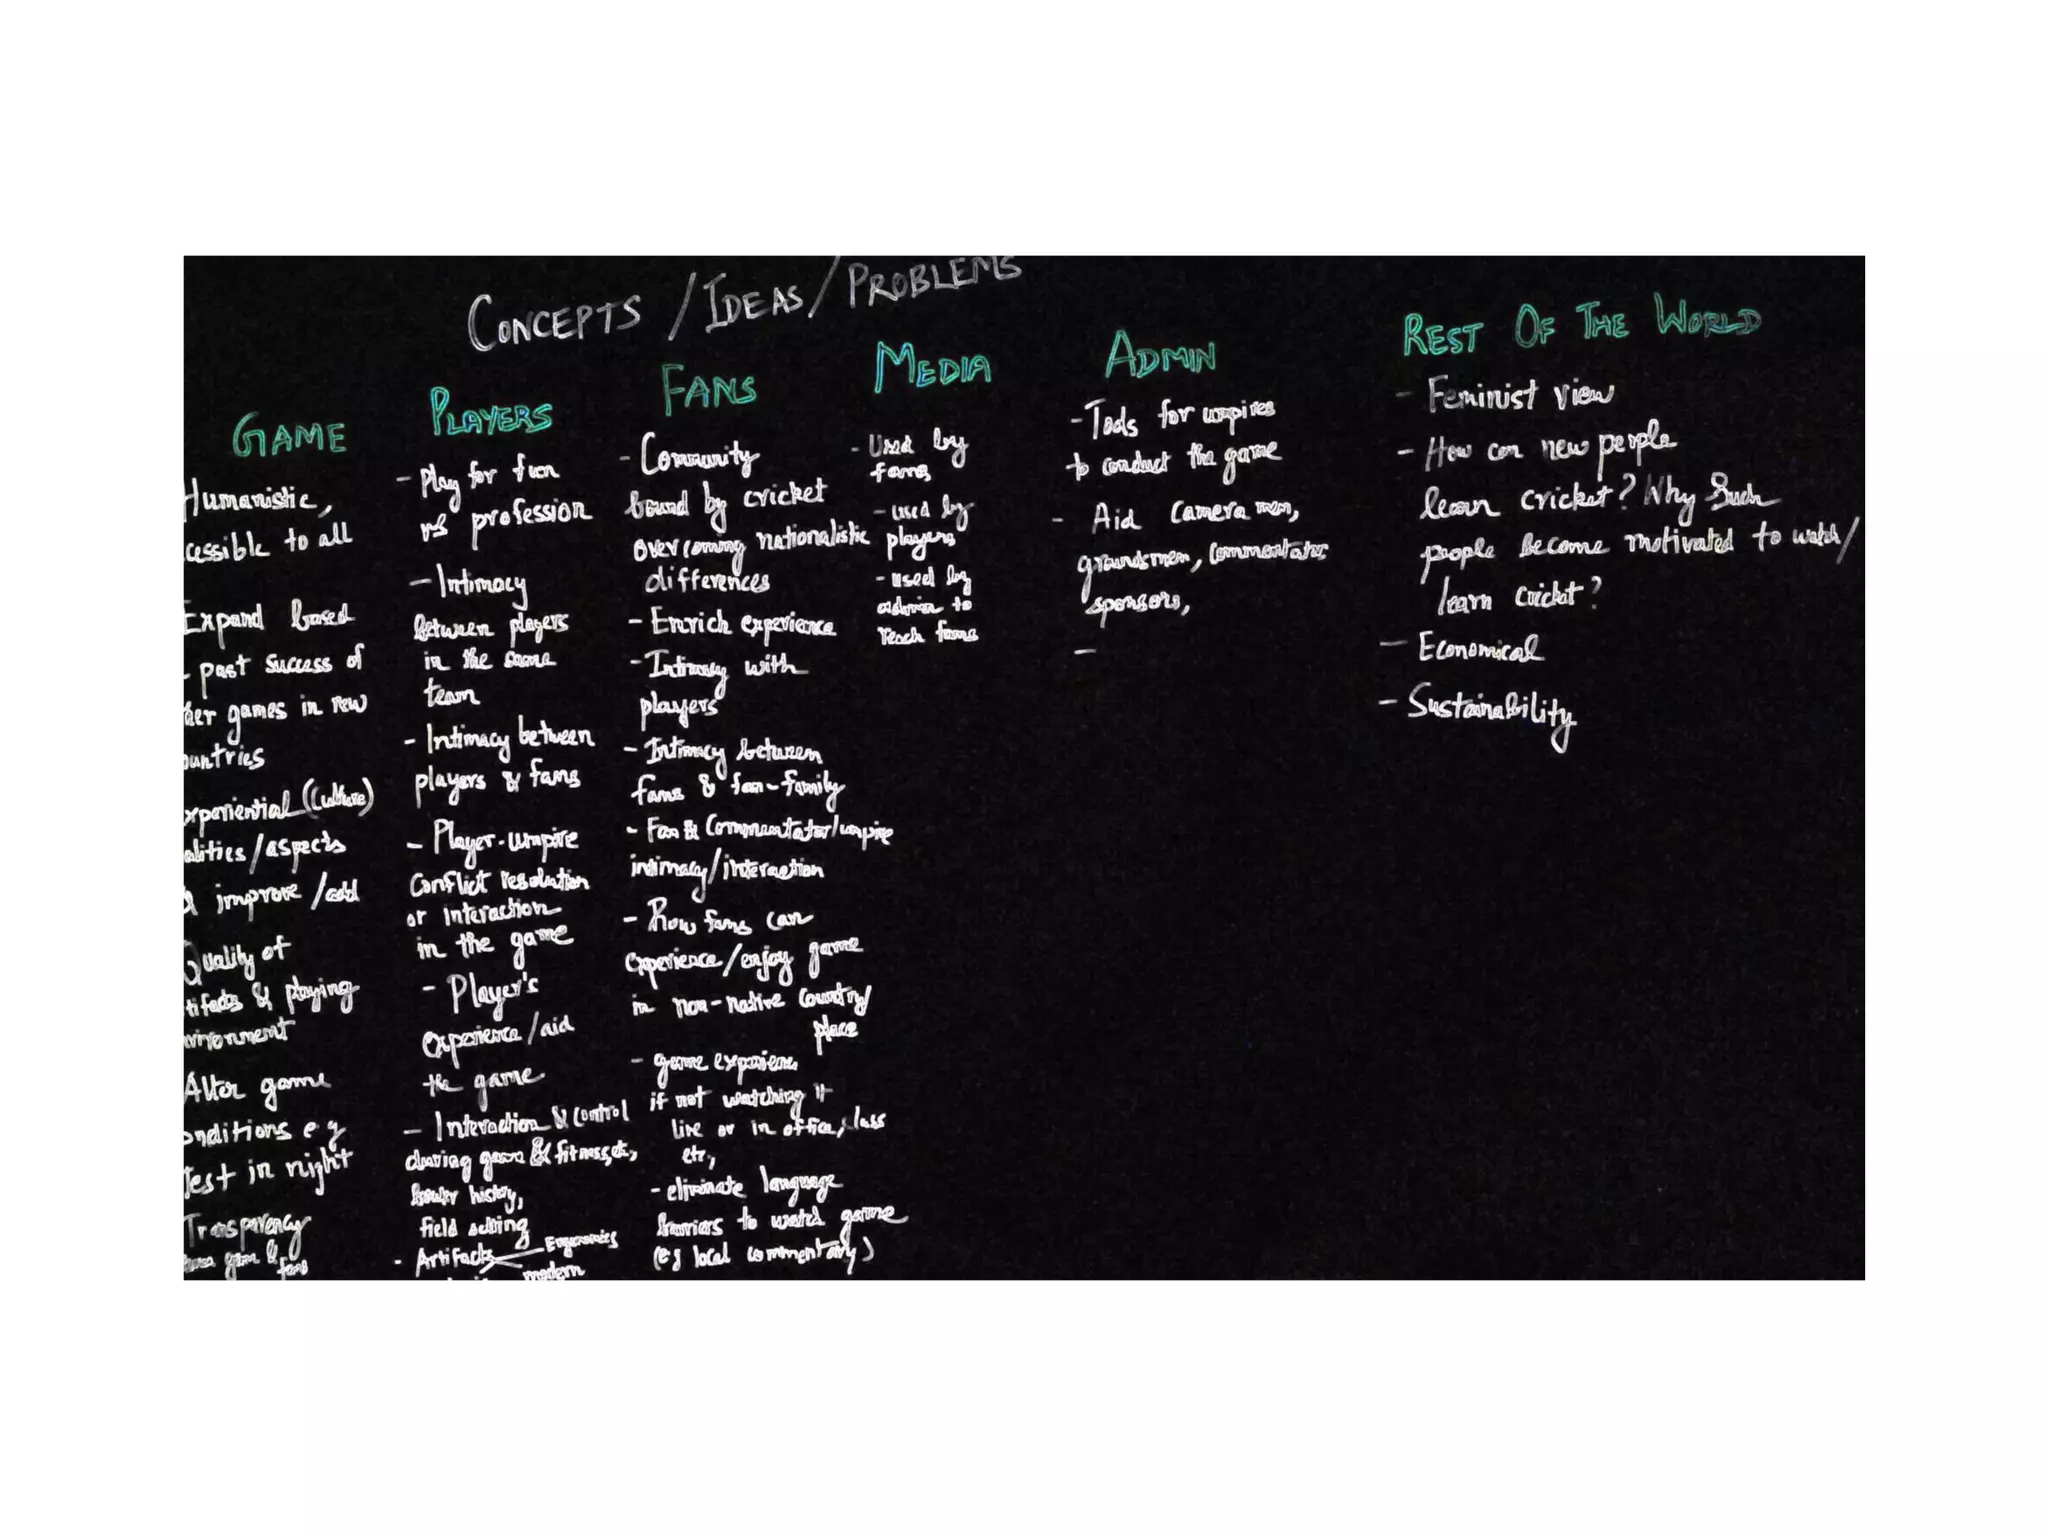 CONCEPTS / IDEAS / PROBLEMS
GAME
Humanistic,
cessible to all
Expand based
- past success of
her games in new
ountries
xperiential (culture)
alities/aspects
improve /add
Quality of
tifacts & playing
vironment
Alter game
onditions e g
Test in night
Transparency
game &
fans
PLAYERS
- Play for fun
vs profession
- Intimacy
between players
in the same
team
- Intimacy between
players & fans
- Player-umpire
Conflict resolution
or interaction
in the game
- Player's
experience/aid
the game
- Interaction & control
during game & fitness, etc,
bowler history,
field setting
- Artifacts Ergonomics
modern
FANS
- Community
bound by cricket
overcoming nationalistic
differences
- Enrich experience
- Intimacy with
players
- Intimacy between
fans & fan-family
- Fan & Commentator/umpire
intimacy/interaction
- How fans can
experience/enjoy game
in non-native country/
place
- game experience
if not watching it
live or in office, class
etc,
- eliminate language
barriers to watch game
(eg local commentary)
MEDIA
- Used by
fans
- used by
players
- used by
admin to
reach fans
ADMIN
- Tools for umpires
to conduct the game
- Aid camera men,
groundsmen, commentators,
sponsors,
-
REST OF THE WORLD
- Feminist view
- How can new people
learn cricket? Why Such
people become motivated to watch/
learn cricket?
- Economical
- Sustainability